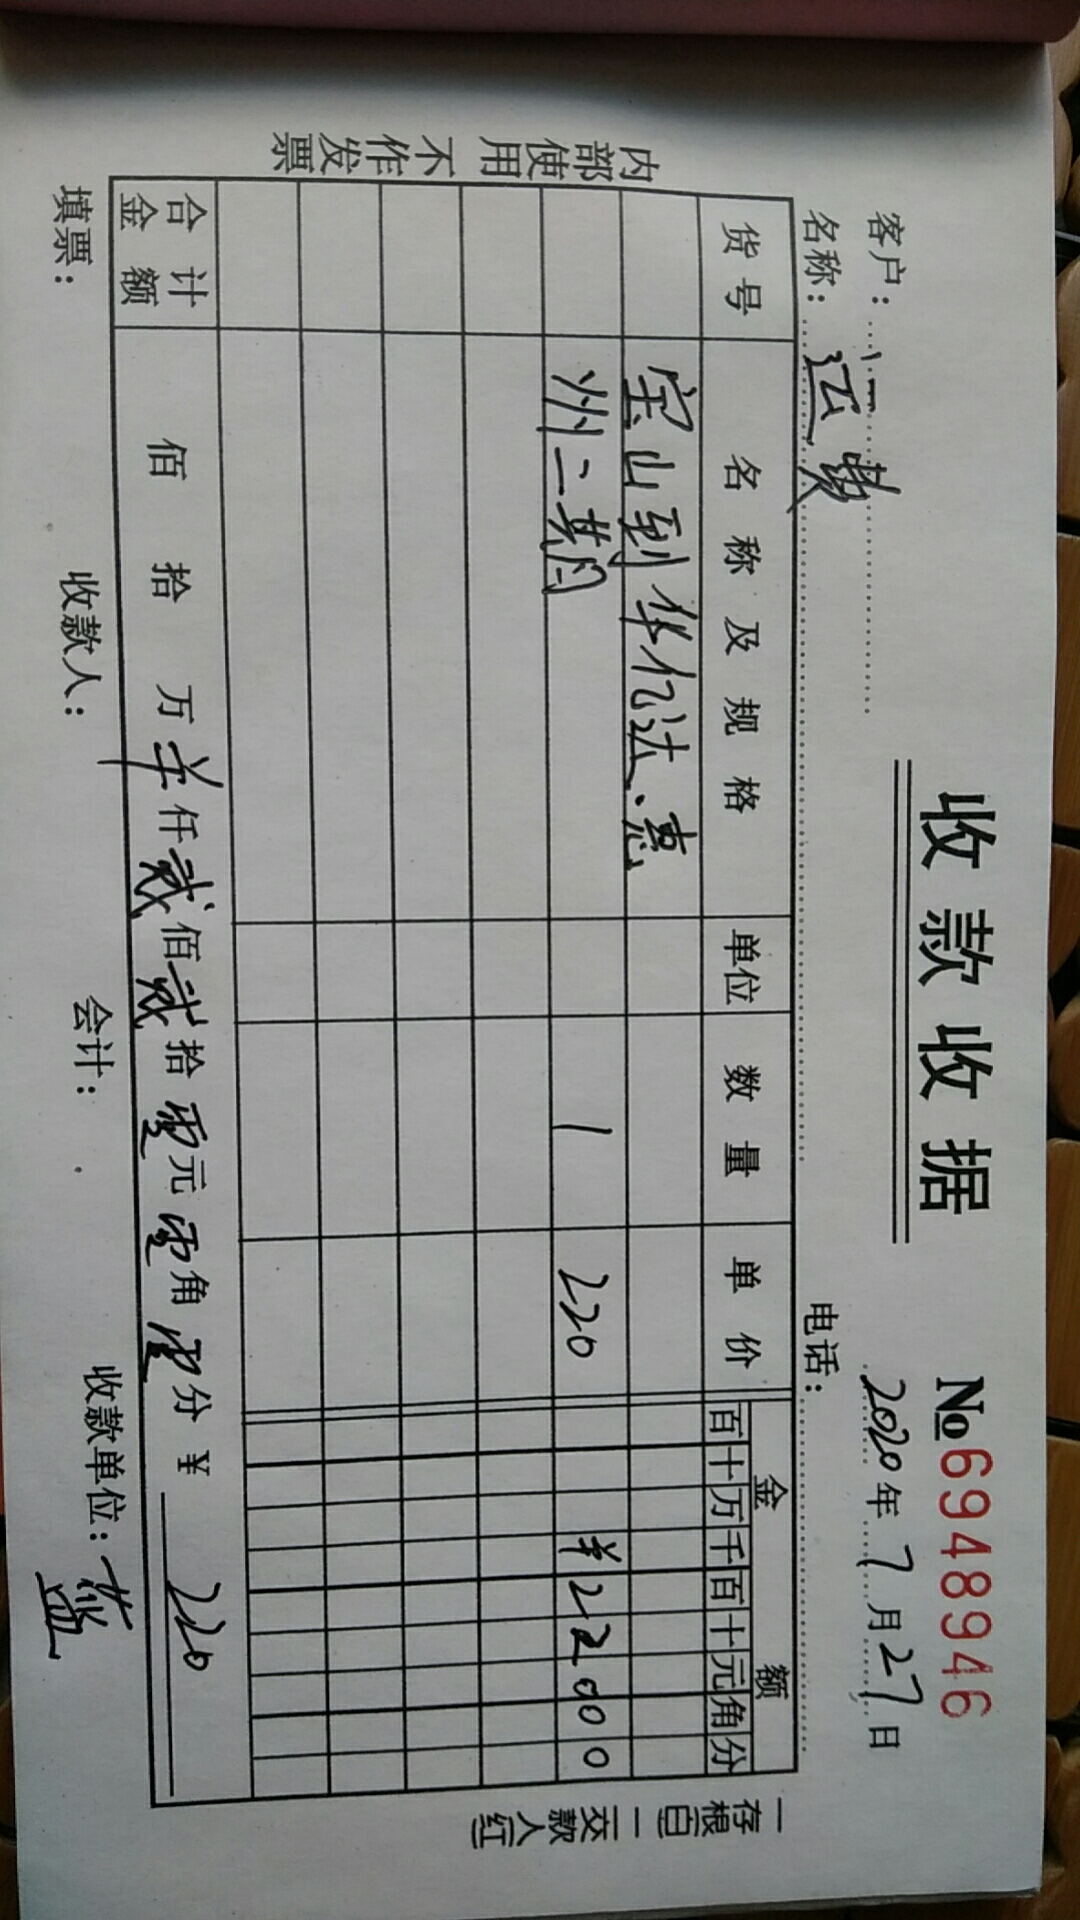 收款收据
№6948946
客户：
名称：
运费
2020年7月27日
电话：
货号 名称及规格 单位 数量 单价 金额
百十万千百十元角分
宝山到华亿达、惠
州二期 1 220 ¥22000
合计
金额
佰拾万 仟贰佰贰拾零元零角零分¥ 220
填票： 收款人： 会计： 收款单位：
内部使用不作发票
一存根白 一交款人红